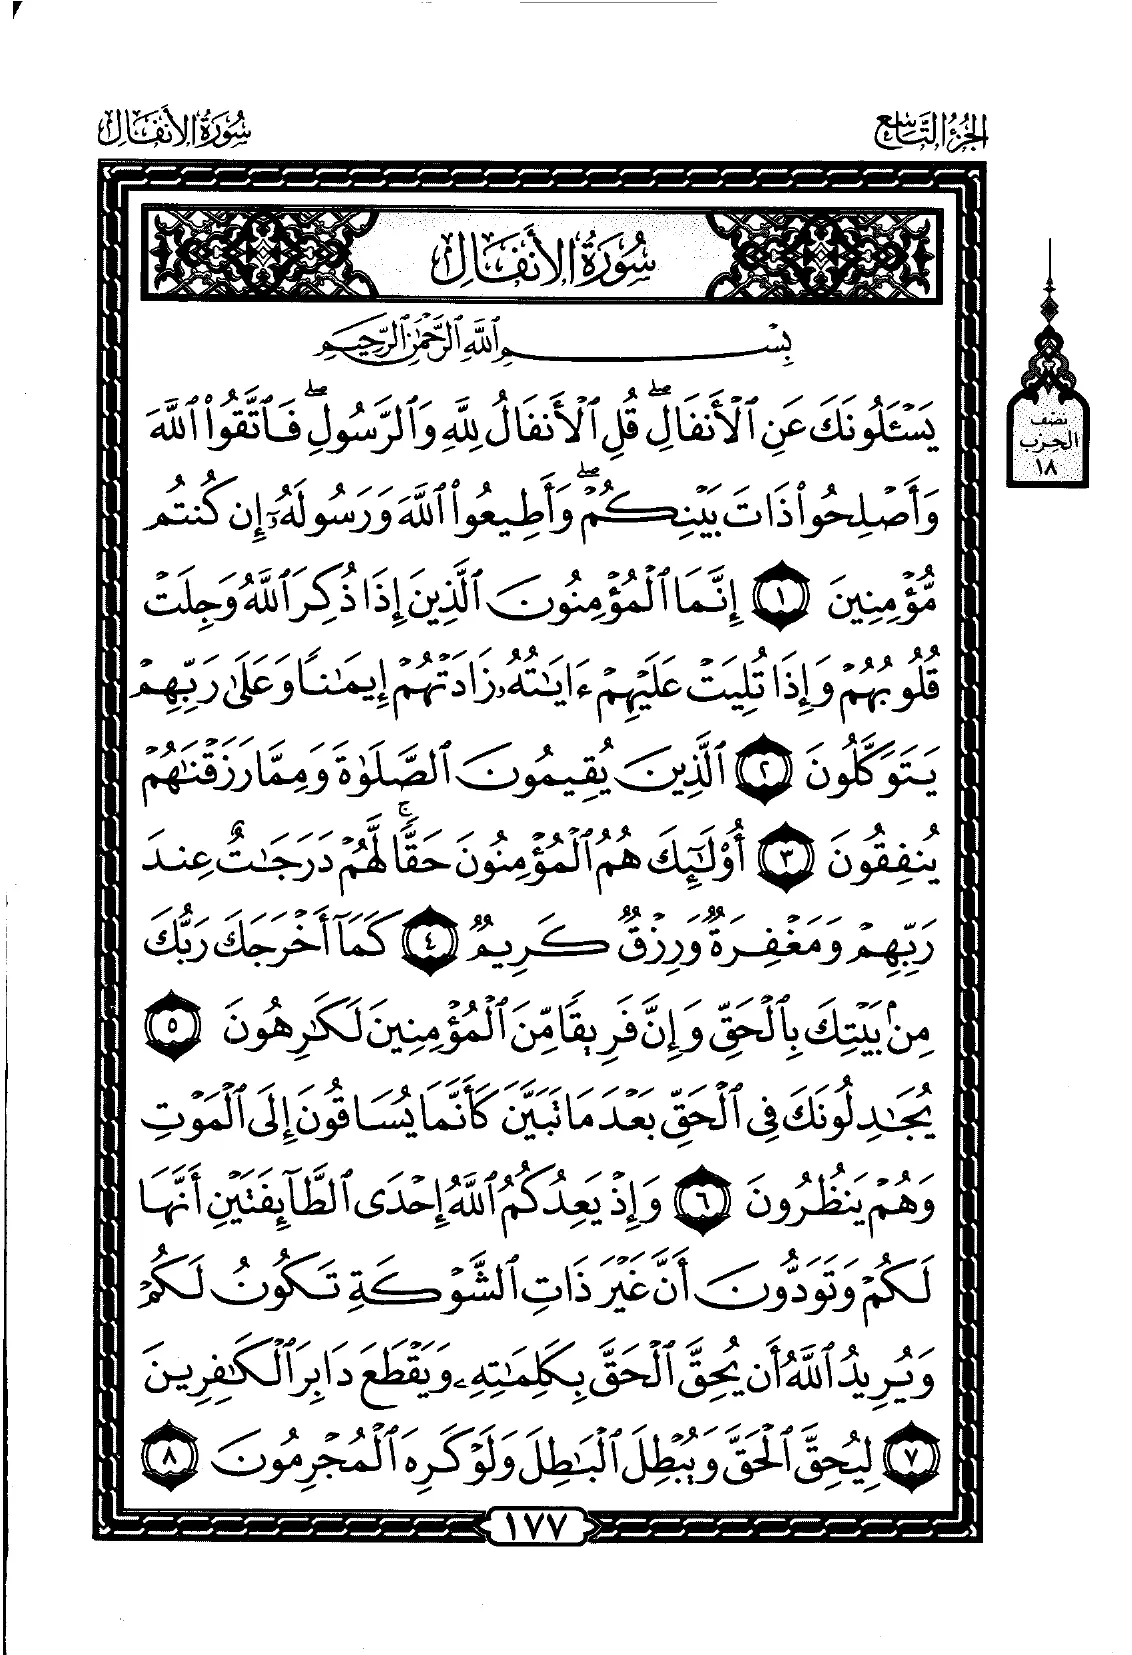 الجزء التاسع
سورة الأنفال
سُورَةُ الأَنفَال
بِسْمِ ٱللَّهِ ٱلرَّحْمَٰنِ ٱلرَّحِيمِ
يَسْـَٔلُونَكَ عَنِ ٱلْأَنفَالِ ۖ قُلِ ٱلْأَنفَالُ لِلَّهِ وَٱلرَّسُولِ ۖ فَٱتَّقُوا۟ ٱللَّهَ
وَأَصْلِحُوا۟ ذَاتَ بَيْنِكُمْ ۖ وَأَطِيعُوا۟ ٱللَّهَ وَرَسُولَهُۥٓ إِن كُنتُم
مُّؤْمِنِينَ ١ إِنَّمَا ٱلْمُؤْمِنُونَ ٱلَّذِينَ إِذَا ذُكِرَ ٱللَّهُ وَجِلَتْ
قُلُوبُهُمْ وَإِذَا تُلِيَتْ عَلَيْهِمْ ءَايَٰتُهُۥ زَادَتْهُمْ إِيمَٰنًا وَعَلَىٰ رَبِّهِمْ
يَتَوَكَّلُونَ ٢ ٱلَّذِينَ يُقِيمُونَ ٱلصَّلَوٰةَ وَمِمَّا رَزَقْنَٰهُمْ
يُنفِقُونَ ٣ أُو۟لَٰٓئِكَ هُمُ ٱلْمُؤْمِنُونَ حَقًّا ۚ لَّهُمْ دَرَجَٰتٌ عِندَ
رَبِّهِمْ وَمَغْفِرَةٌ وَرِزْقٌ كَرِيمٌ ٤ كَمَآ أَخْرَجَكَ رَبُّكَ
مِنۢ بَيْتِكَ بِٱلْحَقِّ وَإِنَّ فَرِيقًا مِّنَ ٱلْمُؤْمِنِينَ لَكَٰرِهُونَ ٥
يُجَٰدِلُونَكَ فِى ٱلْحَقِّ بَعْدَ مَا تَبَيَّنَ كَأَنَّمَا يُسَاقُونَ إِلَى ٱلْمَوْتِ
وَهُمْ يَنظُرُونَ ٦ وَإِذْ يَعِدُكُمُ ٱللَّهُ إِحْدَى ٱلطَّآئِفَتَيْنِ أَنَّهَا
لَكُمْ وَتَوَدُّونَ أَنَّ غَيْرَ ذَاتِ ٱلشَّوْكَةِ تَكُونُ لَكُمْ
وَيُرِيدُ ٱللَّهُ أَن يُحِقَّ ٱلْحَقَّ بِكَلِمَٰتِهِۦ وَيَقْطَعَ دَابِرَ ٱلْكَٰفِرِينَ
٧ لِيُحِقَّ ٱلْحَقَّ وَيُبْطِلَ ٱلْبَٰطِلَ وَلَوْ كَرِهَ ٱلْمُجْرِمُونَ ٨
١٧٧
نصف
الحزب
١٨